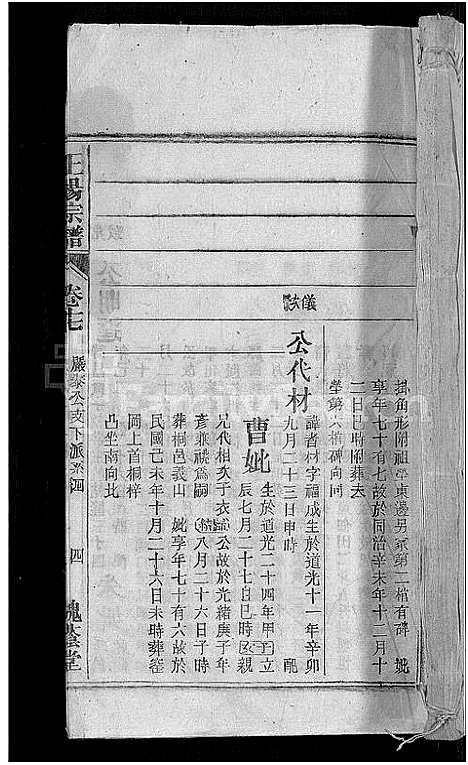 掛角形附祖塋東邊另冢第二棺有碑 妣
享年七十有七故於同治辛未年十二月十
二日巳時附葬夫
塋第六棺碑向同
儀
公代材
諱耆材字福成生於道光十一年辛卯
九月二十三日申時 配
曹妣
生於道光二十四年甲子立
辰七月二十七日巳時 親
兄代相次子衣 公故於光緒庚子年
彥兼祧為嗣 八月二十六日子時
葬桐邑義山 妣享年七十有六故於
民國己未年十月二十六日未時葬
岡上首桐梓
凸坐南向北
王楊宗譜
卷七
嚴泰公支下派系四
四
槐蔭堂